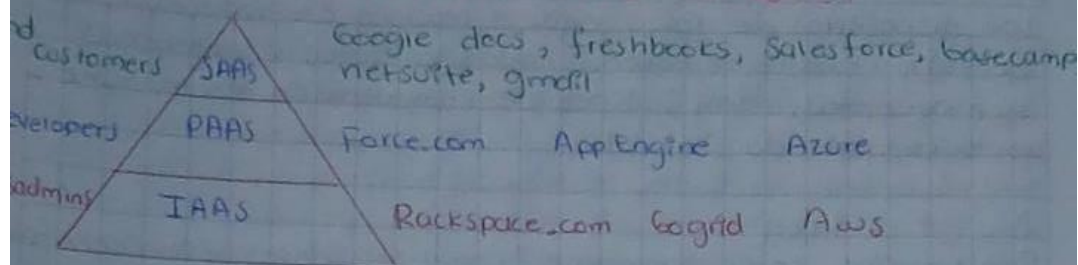 d
customers SAAS Google docs, freshbooks, Salesforce, basecamp
netsuite, gmail
evelopers PAAS Force.com App Engine Azure
admins IAAS Rackspace.com Gogrid Aws